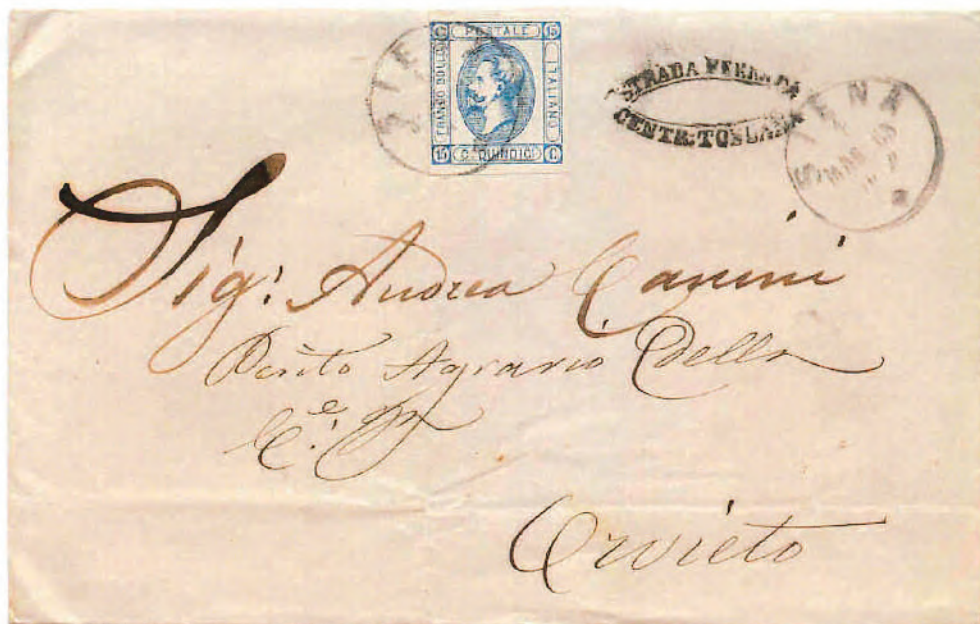 C 15 POSTALE 15 C
FRANCO BOLLO
ITALIANO
15 C. QUINDICI C
SIENA
STRADA FERRATA
CENTR: TOSCANA
SIENA
MAR 63
Sig: Andrea Canini
Perito Agrario Della
Orvieto